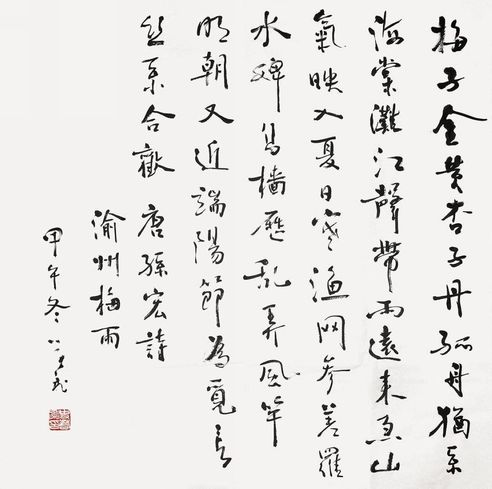 梅子金黄杏子丹孤舟猶系
海棠灘江聲帶雨遠來急山
氣映入夏日寒漁网參差羅
水婢鳥檣歷亂弄風竿
明朝又近端陽節為覓長
丝系合歡 唐孫宏詩
渝州梅雨
甲午冬